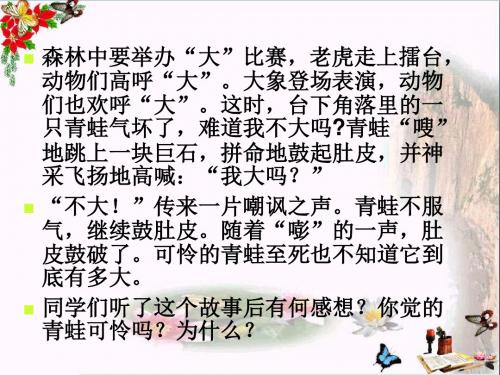 森林中要举办“大”比赛，老虎走上擂台，
动物们高呼“大”。大象登场表演，动物
们也欢呼“大”。这时，台下角落里的一
只青蛙气坏了，难道我不大吗?青蛙“嗖”
地跳上一块巨石，拼命地鼓起肚皮，并神
采飞扬地高喊：“我大吗？”
“不大！”传来一片嘲讽之声。青蛙不服
气，继续鼓肚皮。随着“嘭”的一声，肚
皮鼓破了。可怜的青蛙至死也不知道它到
底有多大。
同学们听了这个故事后有何感想？你觉的
青蛙可怜吗？为什么？